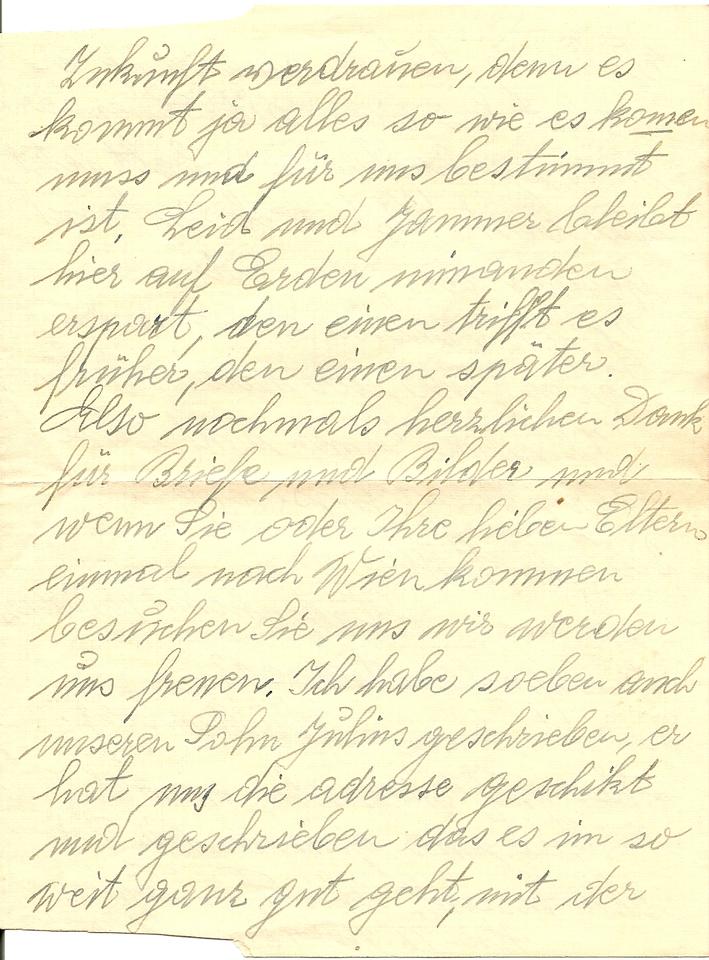 Zukunft verdrauen, denn es
kommt ja alles so wie es komen
muss und für uns bestimmt
ist, Leid und Jammer bleibt
hier auf Erden nimanden
erspart, den einen trifft es
früher, den einen später.
Also nochmals herzlichen Dank
für Briefe und Bilder und
wenn Sie oder Ihre lieben Eltern
einmal nach Wien kommen
besuchen Sie uns wir werden
uns freuen. Ich habe soeben auch
unseren Sohn Julius geschrieben, er
hat uns die adresse geschikt
und geschrieben das es im so
weit ganz gut geht, mit der